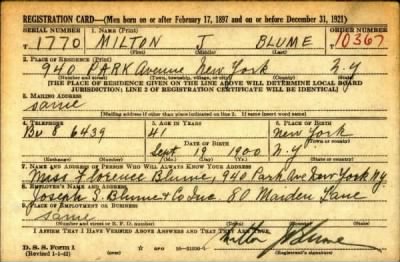 REGISTRATION CARD—(Men born on or after February 17, 1897 and on or before December 31, 1921)
SERIAL NUMBER 1. NAME (Print) ORDER NUMBER
T 1770 MILTON J BLUME 10367
(First) (Middle) (Last)
2. PLACE OF RESIDENCE (Print)
940 PARK Avenue New York N-Y
(Number and street) (Town, township, village, or city) (County) (State)
[THE PLACE OF RESIDENCE GIVEN ON THE LINE ABOVE WILL DETERMINE LOCAL BOARD
JURISDICTION; LINE 2 OF REGISTRATION CERTIFICATE WILL BE IDENTICAL]
3. MAILING ADDRESS
same
[Mailing address if other than place indicated on line 2. If same insert word same]
4. TELEPHONE 5. AGE IN YEARS 6. PLACE OF BIRTH
Bu 8 6439 41 New York
DATE OF BIRTH (Town or county)
Sept 19 1900 N-Y
(Exchange) (Number) (Mo.) (Day) (Yr.) (State or country)
7. NAME AND ADDRESS OF PERSON WHO WILL ALWAYS KNOW YOUR ADDRESS
Miss Florence Blume, 940 Park Ave New York NY
8. EMPLOYER'S NAME AND ADDRESS
Joseph S. Blume & Co Inc. 80 Maiden Lane
9. PLACE OF EMPLOYMENT OR BUSINESS
same
(Number and street or R. F. D. number) (Town) (County) (State)
I AFFIRM THAT I HAVE VERIFIED ABOVE ANSWERS AND THAT THEY ARE TRUE.
D. S. S. Form 1
(Revised 1-1-42) GPO
Milton J Blume
(Registrant's signature)